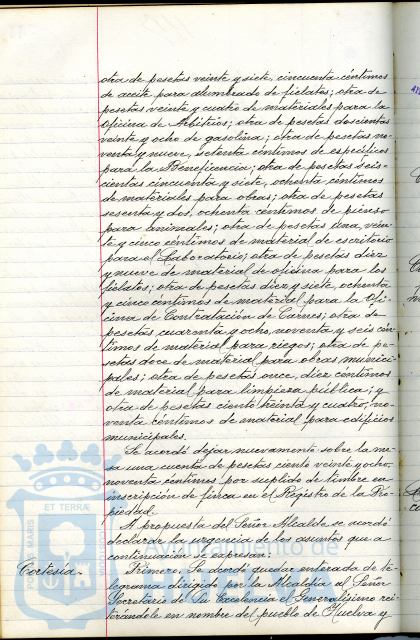 otra de pesetas veinte y siete, cincuenta céntimos
de aceite para alumbrado de fielatos; otra de
pesetas veinte y cuatro de materiales para la
Oficina de Arbitrios; otra de pesetas doscientas
veinte y ocho de gasolina; otra de pesetas no-
venta y nueve, setenta céntimos de específicos
para la Beneficencia; otra de pesetas seis-
cientas cincuenta y siete, ochenta céntimos
de materiales para obras; otra de pesetas
sesenta y dos, ochenta céntimos de pienso
para animales; otra de pesetas una, vein-
te y cinco céntimos de material de escritorio
para el Laboratorio; otra de pesetas diez
y nueve de material de oficina para los
fielatos; otra de pesetas diez y siete, ochenta
y cinco céntimos de material para la Ofi-
cina de Contratación de Carnes; otra de
pesetas cuarenta y ocho, noventa y seis cén-
timos de material para riegos; otra de pe-
setas doce de material para obras munici-
pales; otra de pesetas once, diez céntimos
de material para limpieza pública; y
otra de pesetas ciento treinta y cuatro, no-
venta céntimos de material para edificios
municipales.
Se acordó dejar nuevamente sobre la me-
sa una cuenta de pesetas ciento veinte y ocho,
noventa céntimos por suplido de timbre en
inscripción de finca en el Registro de la Pro-
piedad.
A propuesta del Señor Alcalde se acordó
declarar la urgencia de los asuntos que a
continuación se expresan:
Cortesía. Primero. Se acordó quedar enterada de te-
legrama dirigido por la Alcaldía al Señor
Secretario de Su Excelencia el Generalísimo rei-
terándole en nombre del pueblo de Huelva y
PORTUS MARIS
ET TERRÆ